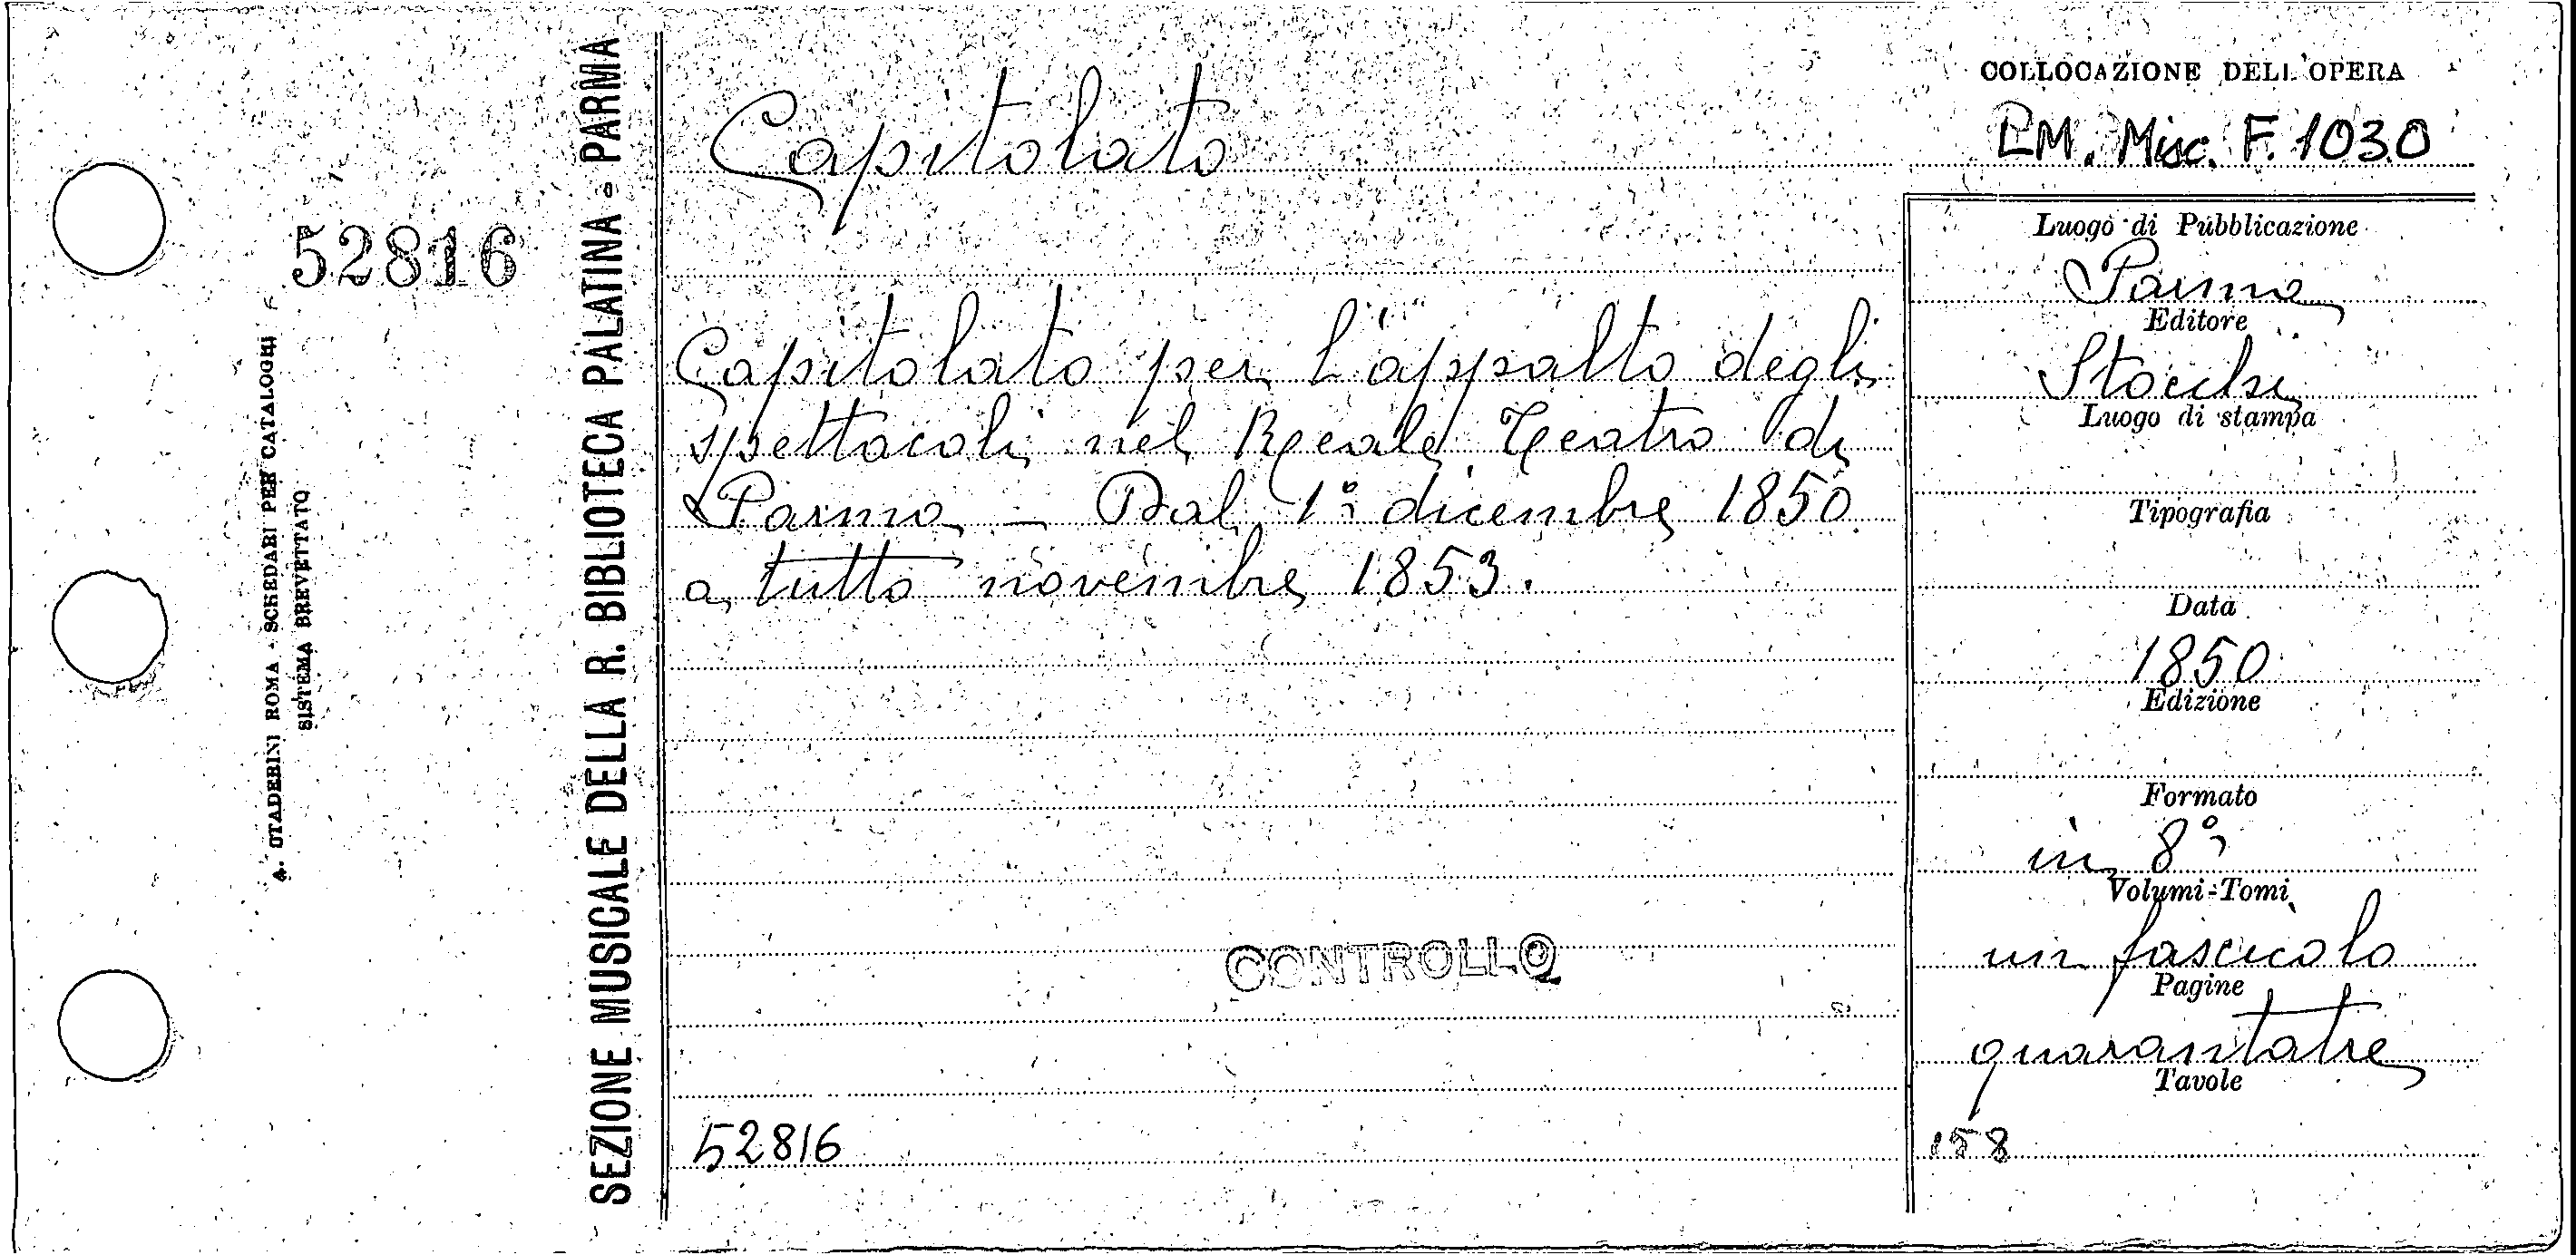 COLLOCAZIONE DELL'OPERA
Capitolato
LM. Misc. F. 1030
52816
SEZIONE MUSICALE DELLA R. BIBLIOTECA PALATINA - PARMA
STADERINI ROMA - SCHEDARI PER CATALOGHI
SISTEMA BREVETTATO
Capitolato per l'appalto degli
spettacoli nel Reale Teatro di
Parma - Dal 1° dicembre 1850
a tutto novembre 1853.
CONTROLLO
52816
Luogo di Pubblicazione
Parma
Editore
Stocchi
Luogo di stampa
Tipografia
Data
1850
Edizione
Formato
in 8°
Volumi-Tomi
un fascicolo
Pagine
quarantatre
Tavole
158